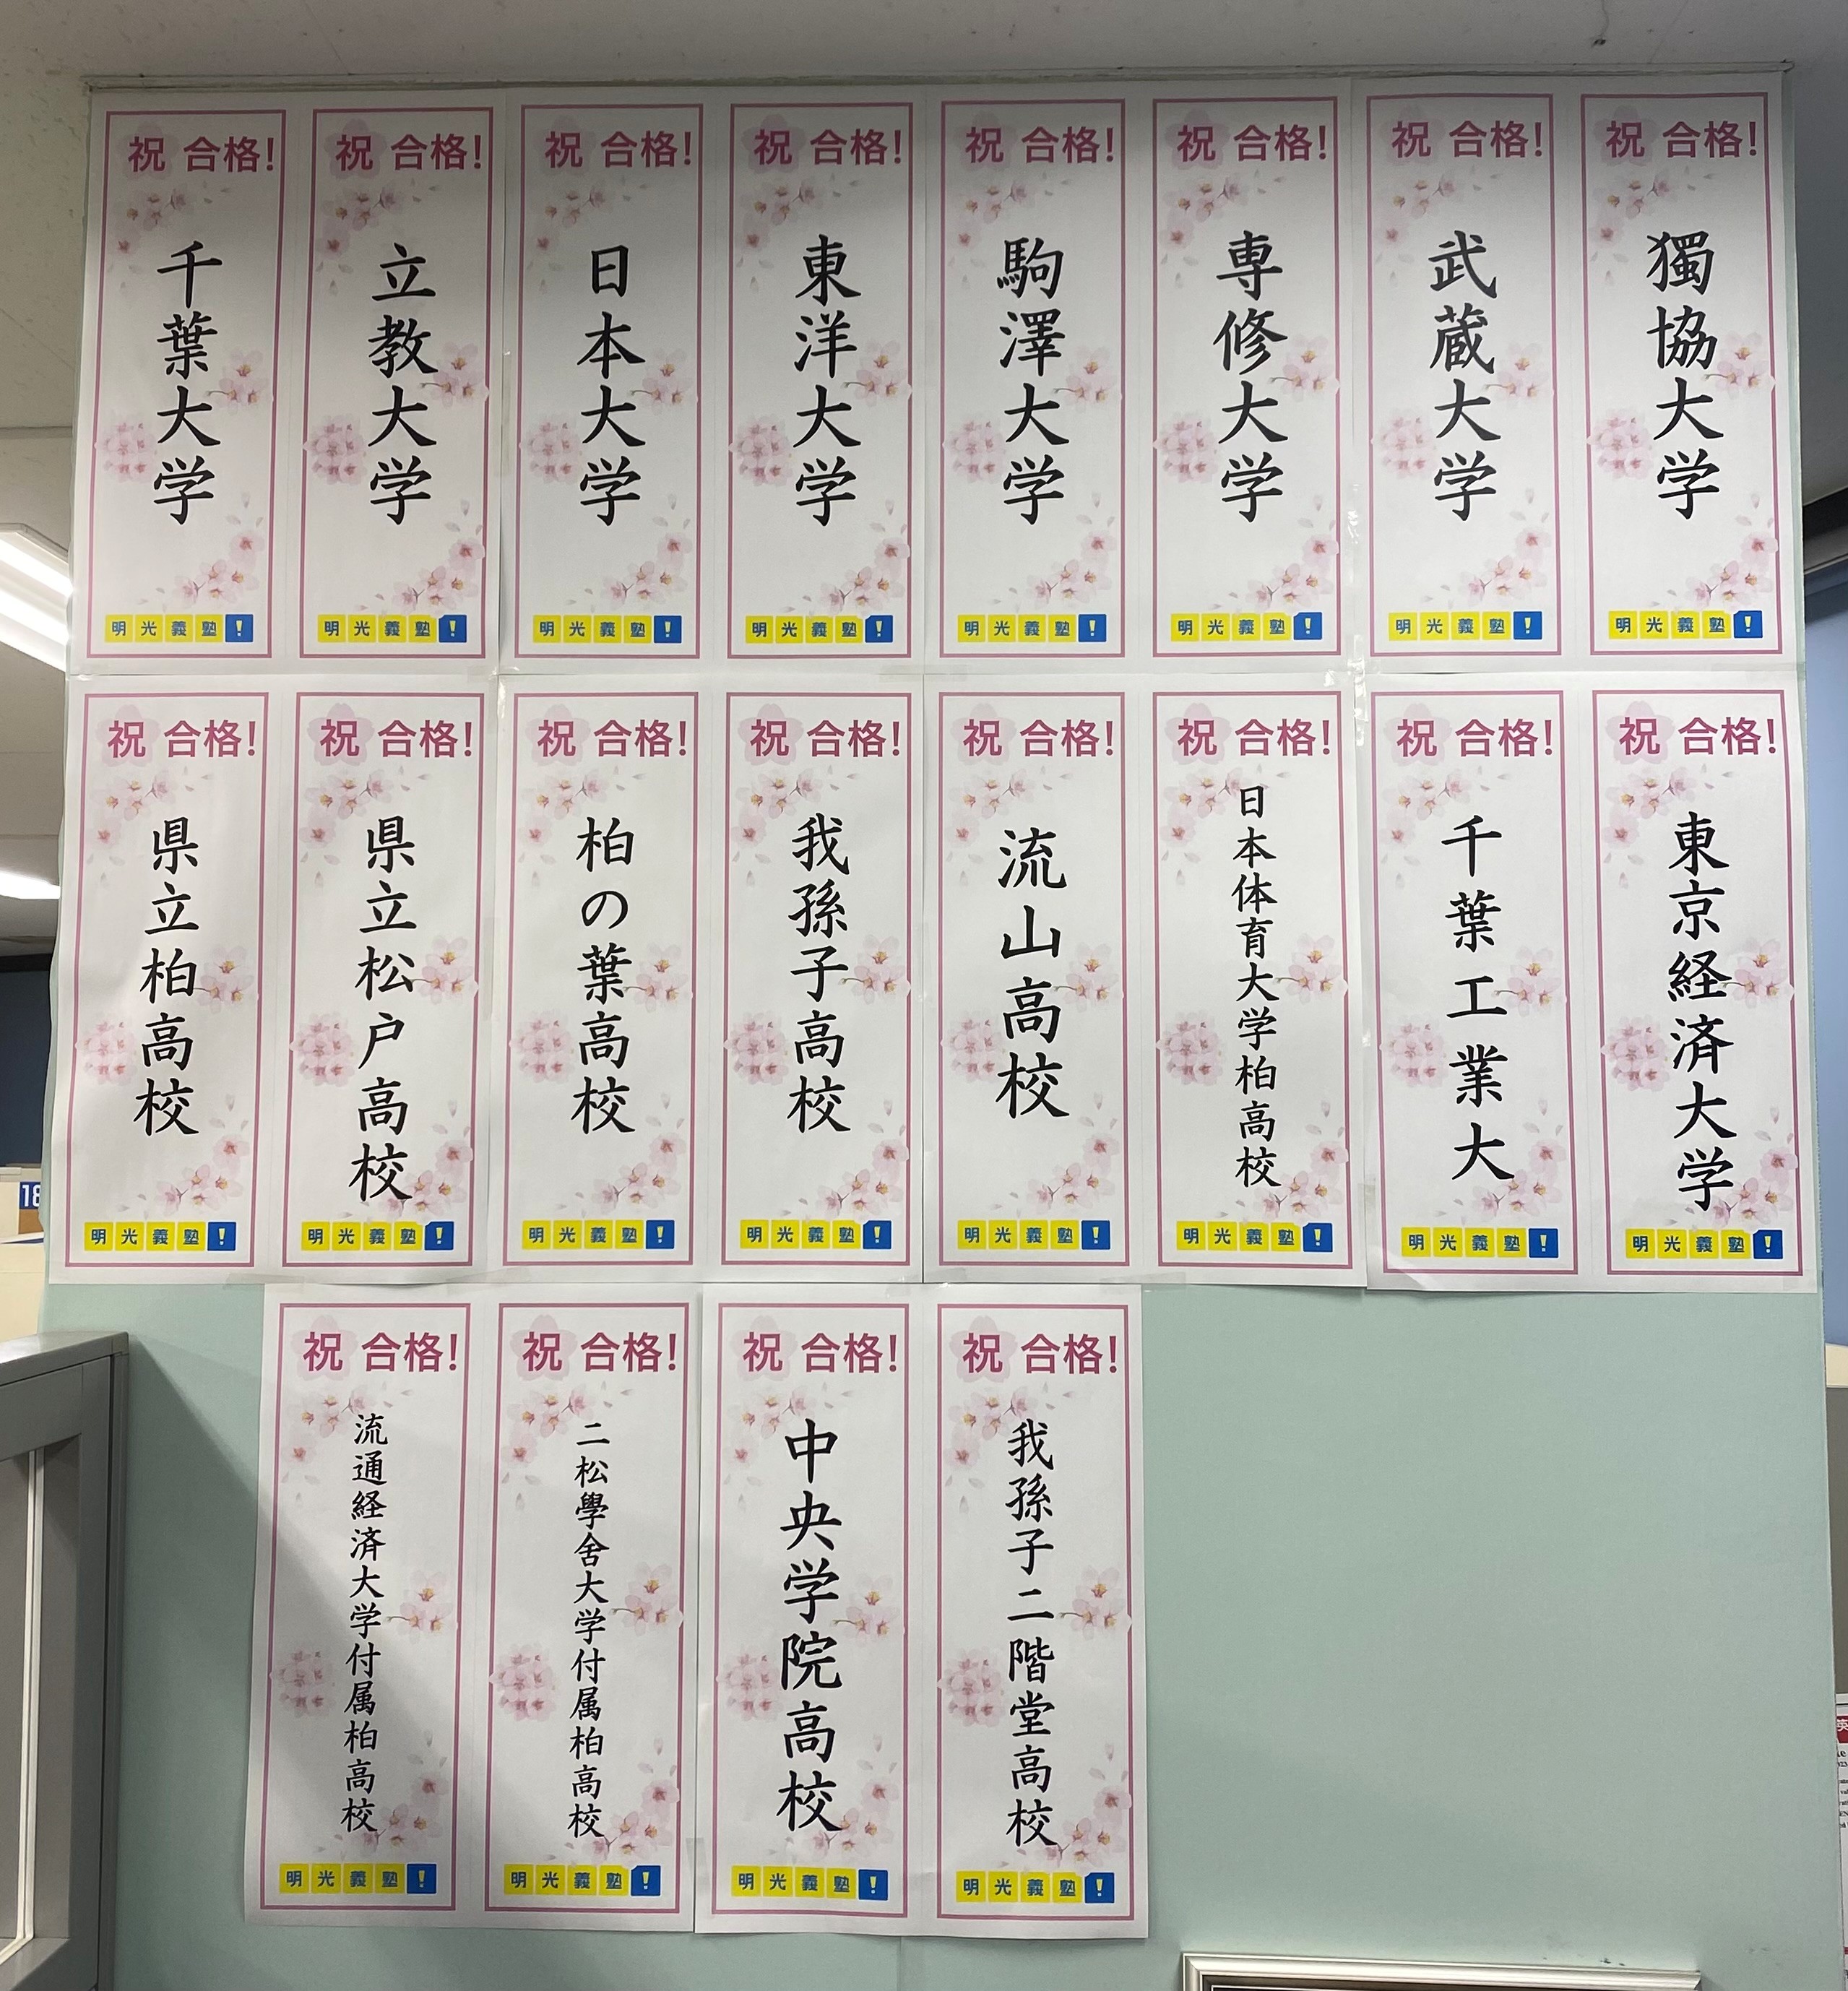 祝 合格!
千葉大学
明光義塾!
祝 合格!
立教大学
明光義塾!
祝 合格!
日本大学
明光義塾!
祝 合格!
東洋大学
明光義塾!
祝 合格!
駒澤大学
明光義塾!
祝 合格!
専修大学
明光義塾!
祝 合格!
武蔵大学
明光義塾!
祝 合格!
獨協大学
明光義塾!
祝 合格!
県立柏高校
明光義塾!
祝 合格!
県立松戸高校
明光義塾!
祝 合格!
柏の葉高校
明光義塾!
祝 合格!
我孫子高校
明光義塾!
祝 合格!
流山高校
明光義塾!
祝 合格!
日本体育大学柏高校
明光義塾!
祝 合格!
千葉工業大
明光義塾!
祝 合格!
東京経済大学
明光義塾!
祝 合格!
流通経済大学付属柏高校
明光義塾!
祝 合格!
二松學舍大学付属柏高校
明光義塾!
祝 合格!
中央学院高校
明光義塾!
祝 合格!
我孫子二階堂高校
明光義塾!
18